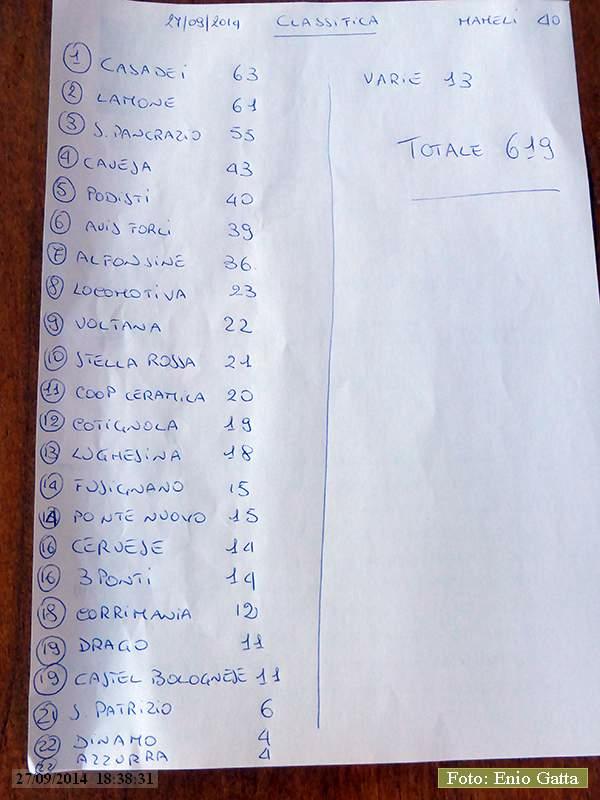 27/09/2014 CLASSIFICA MAMELI 40
1 CASADEI 63
2 LAMONE 61
3 S. PANCRAZIO 55
4 CAVEJA 43
5 PODISTI 40
6 AVIS FORLI 39
7 ALFONSINE 36
8 LOCOMOTIVA 23
9 VOLTANA 22
10 STELLA ROSSA 21
11 COOP CERAMICA 20
12 COTIGNOLA 19
13 LUGHESINA 18
14 FUSIGNANO 15
14 PONTE NUOVO 15
16 CERVESE 14
16 3 PONTI 14
18 CORRIMANIA 12
19 DRAGO 11
19 CASTEL BOLOGNESE 11
21 S. PATRIZIO 6
22 DINAMO 4
22 AZZURRA 4
VARIE 13
TOTALE 619
27/09/2014 18:38:31
Foto: Enio Gatta